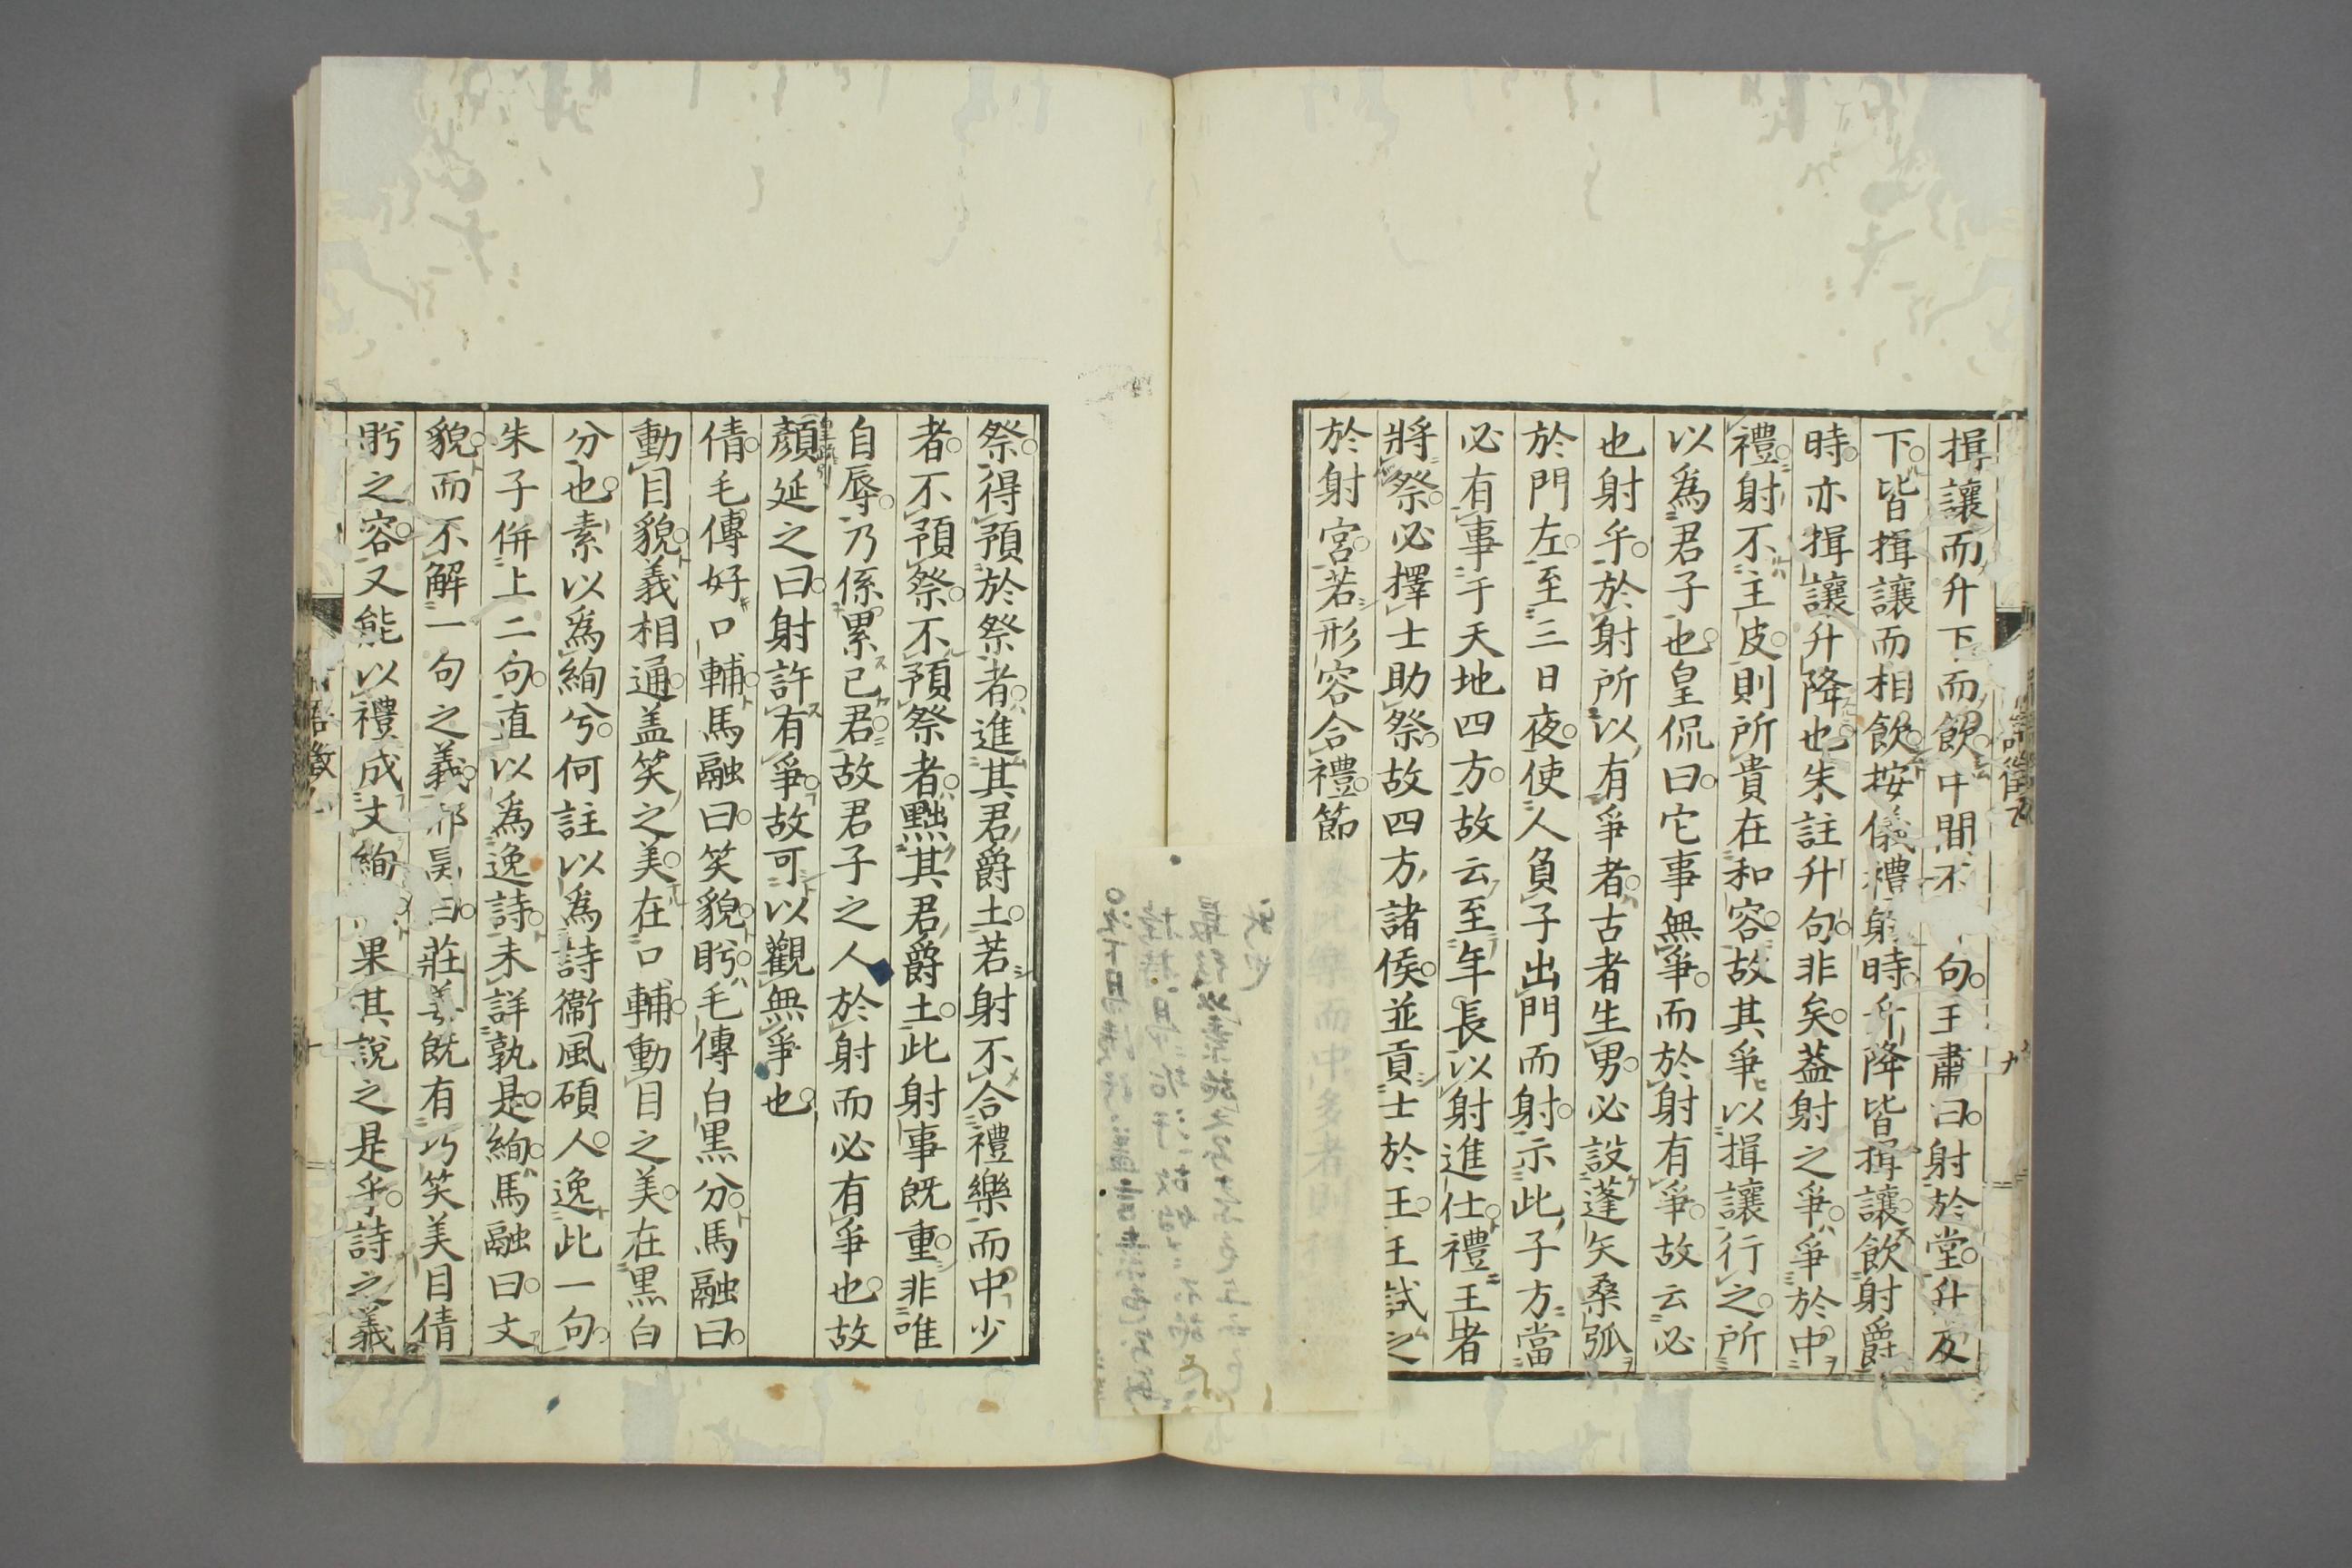 揖讓而升下而飲中間不句王肅曰射於堂升及
下皆揖讓而相飲按儀禮射時升降皆揖讓飲射爵
時亦揖讓升降也朱註升句非矣葢射之爭爭於中
禮射不主皮則所貴在和容故其爭以揖讓行之所
以爲君子也皇侃曰它事無爭而於射有爭故云必
也射乎於射所以有爭者古者生男必設蓬矢桑弧
於門左至三日夜使人負子出門而射示此子方當
必有事于天地四方故云至年長以射進仕禮王者
將祭必擇士助祭故四方諸侯並貢士於王王試之
於射宮若形容合禮節
祭得預於祭者進其君爵土若射不合禮樂而中少
者不預祭不預祭者黜其君爵土此射事既重非唯
自辱乃係累己君故君子之人於射而必有爭也故
顏延之曰射許有爭故可以觀無爭也
倩毛傳好口輔馬融曰笑貌盻毛傳白黒分馬融曰
動目貌義相通盖笑之美在口輔動目之美在黒白
分也素以爲絢兮何註以爲詩衞風碩人逸此一句
朱子併上二句直以爲逸詩未詳孰是絢馬融曰文
貌而不解一句之義邢昺曰莊姜既有巧笑美目倩
盻之容又能以禮成文絢果其說之是乎詩之義